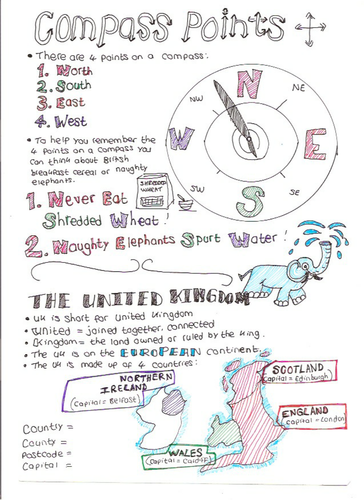 Compass Points
• There are 4 points on a compass:
1. North
2. South
3. East
4. West
• To help you remember the
4 points on a compass you
can think about British
breakfast cereal or naughty
elephants.
N
NE
E
SE
S
SW
W
NW
SHREDDED
WHEAT
1. Never Eat
Shredded Wheat!
2. Naughty Elephants Spurt Water!
THE UNITED KINGDOM
• UK is short for United Kingdom
• United = joined together, connected
• Kingdom = the land owned or ruled by the king.
• The UK is on the EUROPEAN continent.
• The UK is made up of 4 countries:
NORTHERN
IRELAND
(capital = Belfast)
SCOTLAND
(capital = Edinburgh)
ENGLAND
(capital = London)
WALES
(capital = Cardiff)
Country =
County =
Postcode =
Capital =